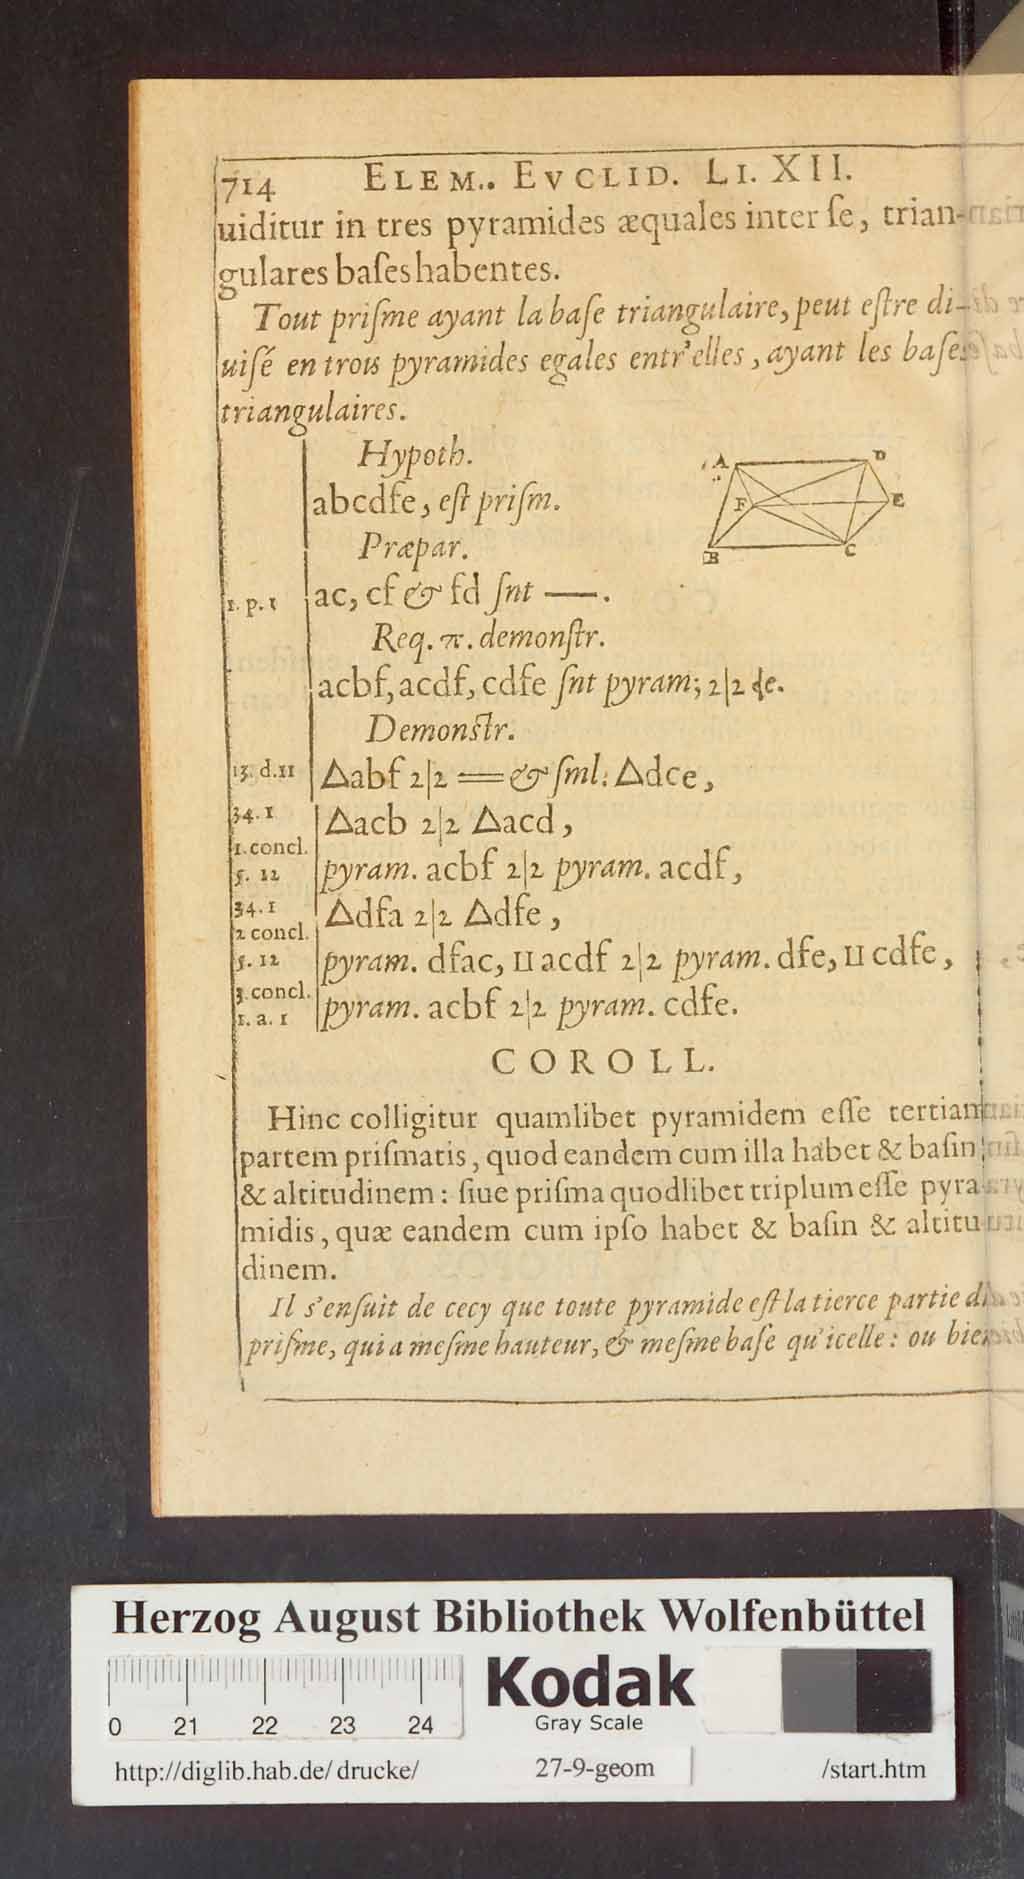 714 ELEM.. EVCLID. LI. XII.
uiditur in tres pyramides æquales inter ſe, trian-
gulares baſes habentes.
Tout priſme ayant la baſe triangulaire, peut eſtre di-
uiſé en trois pyramides egales entr'elles, ayant les baſes
triangulaires.
Hypoth.
abcdfe, eſt priſm.
Præpar.
1. p. 1 ac, cf & fd ſnt —.
Req. π. demonſtr.
acbf, acdf, cdfe ſnt pyram; 2|2 de.
Demonſtr.
13. d. 11 △abf 2|2 = & ſml: △dce,
34. 1 △acb 2|2 △acd,
1. concl.
5. 12 pyram. acbf 2|2 pyram. acdf,
34. 1 △dfa 2|2 △dfe,
2 concl.
5. 12 pyram. dfac, II acdf 2|2 pyram. dfe, II cdfe,
3. concl.
1. a. 1 pyram. acbf 2|2 pyram. cdfe.
A D F E B C
COROLL.
Hinc colligitur quamlibet pyramidem eſſe tertiam
partem priſmatis, quod eandem cum illa habet & baſin
& altitudinem: ſiue priſma quodlibet triplum eſſe pyra
midis, quæ eandem cum ipſo habet & baſin & altitu
dinem.
Il s'enſuit de cecy que toute pyramide eſt la tierce partie du
priſme, qui a meſme hauteur, & meſme baſe qu'icelle: ou bien
Herzog August Bibliothek Wolfenbüttel
0 21 22 23 24
Kodak
Gray Scale
http://diglib.hab.de/drucke/ 27-9-geom /start.htm